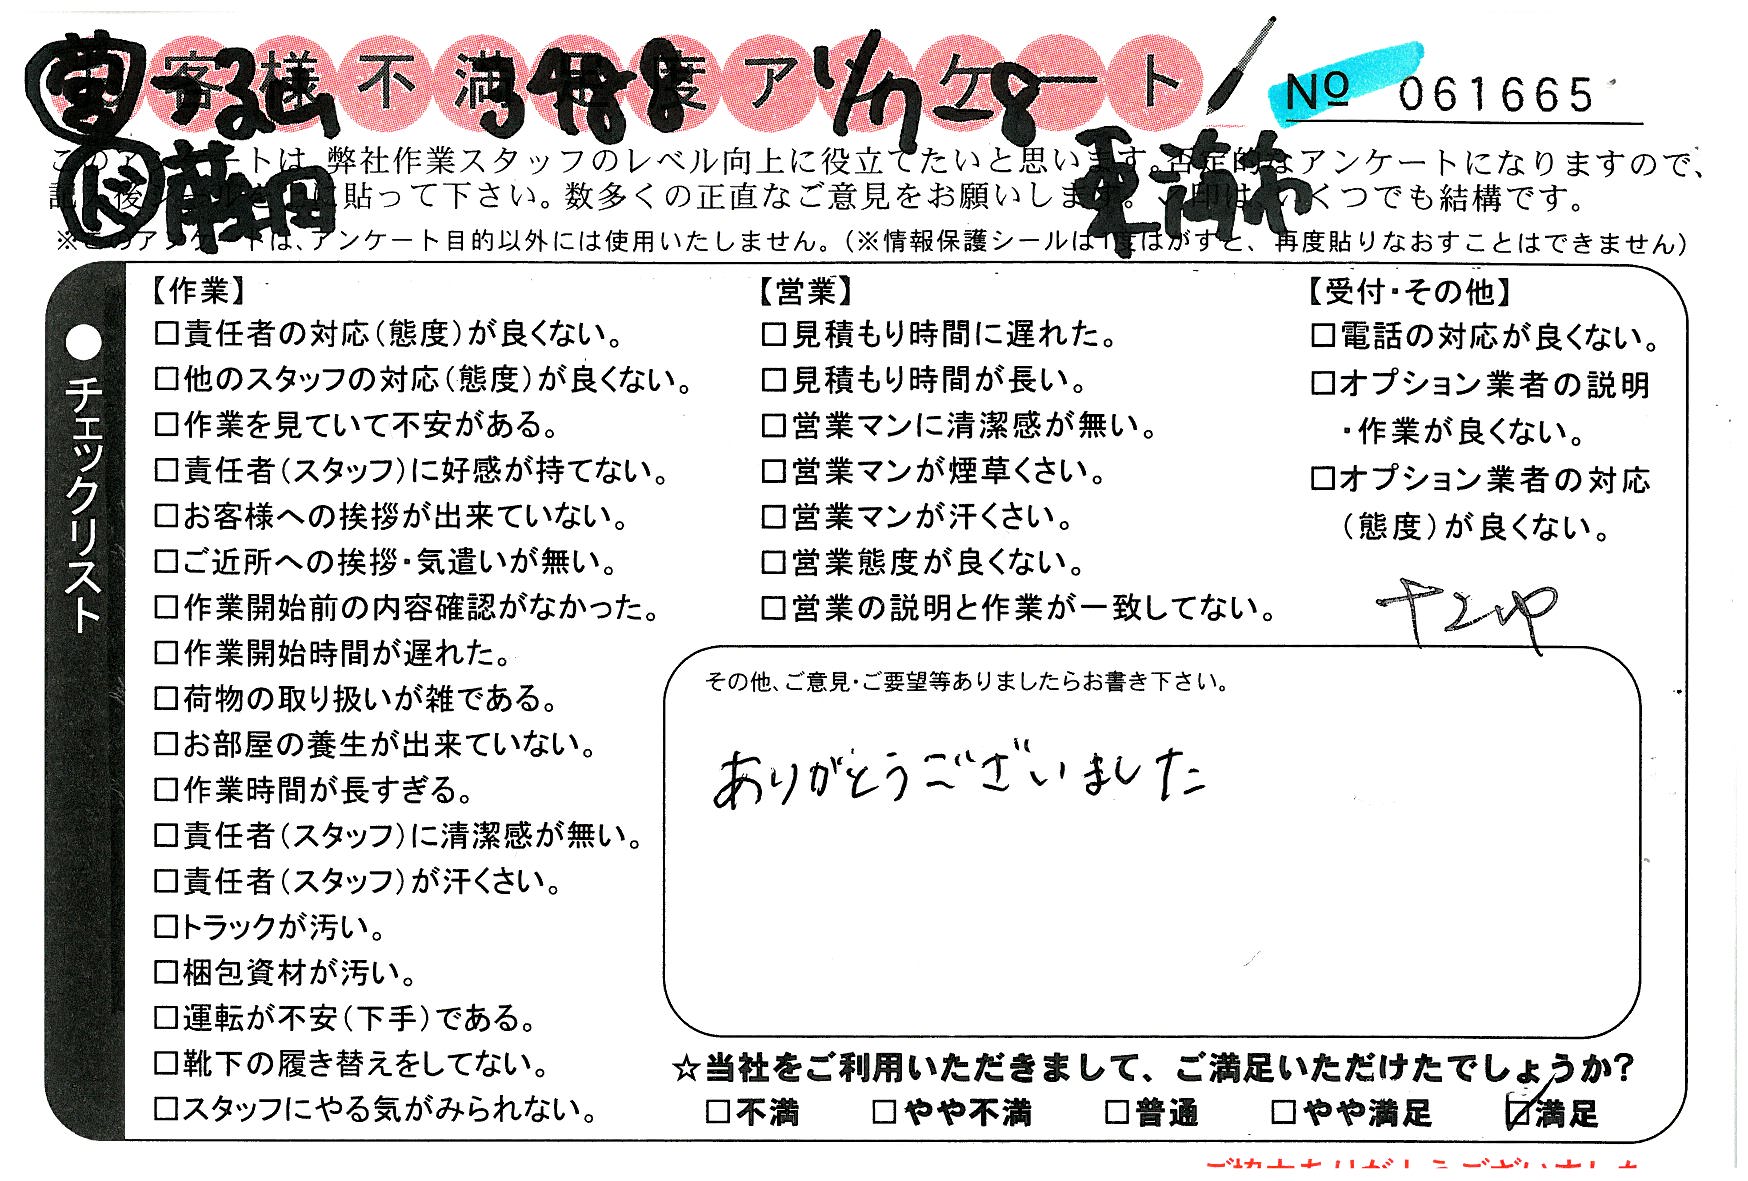 お客様不満足度アンケート
№ 061665
営 つる山 3488 11/17-28
ド 藤田
このアンケートは、弊社作業スタッフのレベル向上に役立てたいと思います。否定的なアンケートになりますので、
記入後シールを上に貼って下さい。数多くの正直なご意見をお願いします。✓印は、いくつでも結構です。
※このアンケートは、アンケート目的以外には使用いたしません。(※情報保護シールは1度はがすと、再度貼りなおすことはできません)
●チェックリスト
【作業】
□責任者の対応(態度)が良くない。
□他のスタッフの対応(態度)が良くない。
□作業を見ていて不安がある。
□責任者(スタッフ)に好感が持てない。
□お客様への挨拶が出来ていない。
□ご近所への挨拶・気遣いが無い。
□作業開始前の内容確認がなかった。
□作業開始時間が遅れた。
□荷物の取り扱いが雑である。
□お部屋の養生が出来ていない。
□作業時間が長すぎる。
□責任者(スタッフ)に清潔感が無い。
□責任者(スタッフ)が汗くさい。
□トラックが汚い。
□梱包資材が汚い。
□運転が不安(下手)である。
□靴下の履き替えをしてない。
□スタッフにやる気がみられない。
【営業】
□見積もり時間に遅れた。
□見積もり時間が長い。
□営業マンに清潔感が無い。
□営業マンが煙草くさい。
□営業マンが汗くさい。
□営業態度が良くない。
□営業の説明と作業が一致してない。
【受付・その他】
□電話の対応が良くない。
□オプション業者の説明
・作業が良くない。
□オプション業者の対応
(態度)が良くない。
その他、ご意見・ご要望等ありましたらお書き下さい。
ありがとうございました
☆当社をご利用いただきまして、ご満足いただけたでしょうか?
□不満 □やや不満 □普通 □やや満足 ☑満足